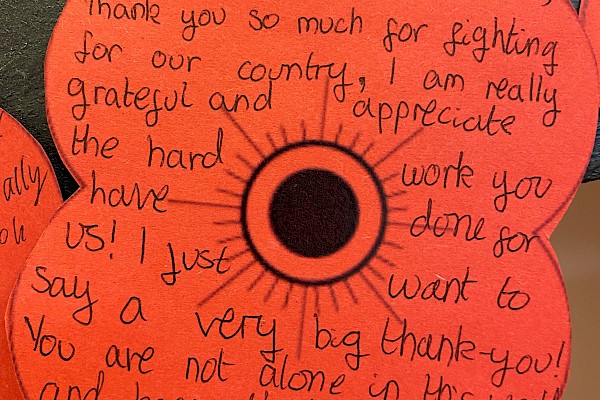 Thank you so much for fighting
for our country, I am really
grateful and appreciate
the hard work you
have done for
us! I just want to
say a very big thank-you!
You are not alone in this
and
ally